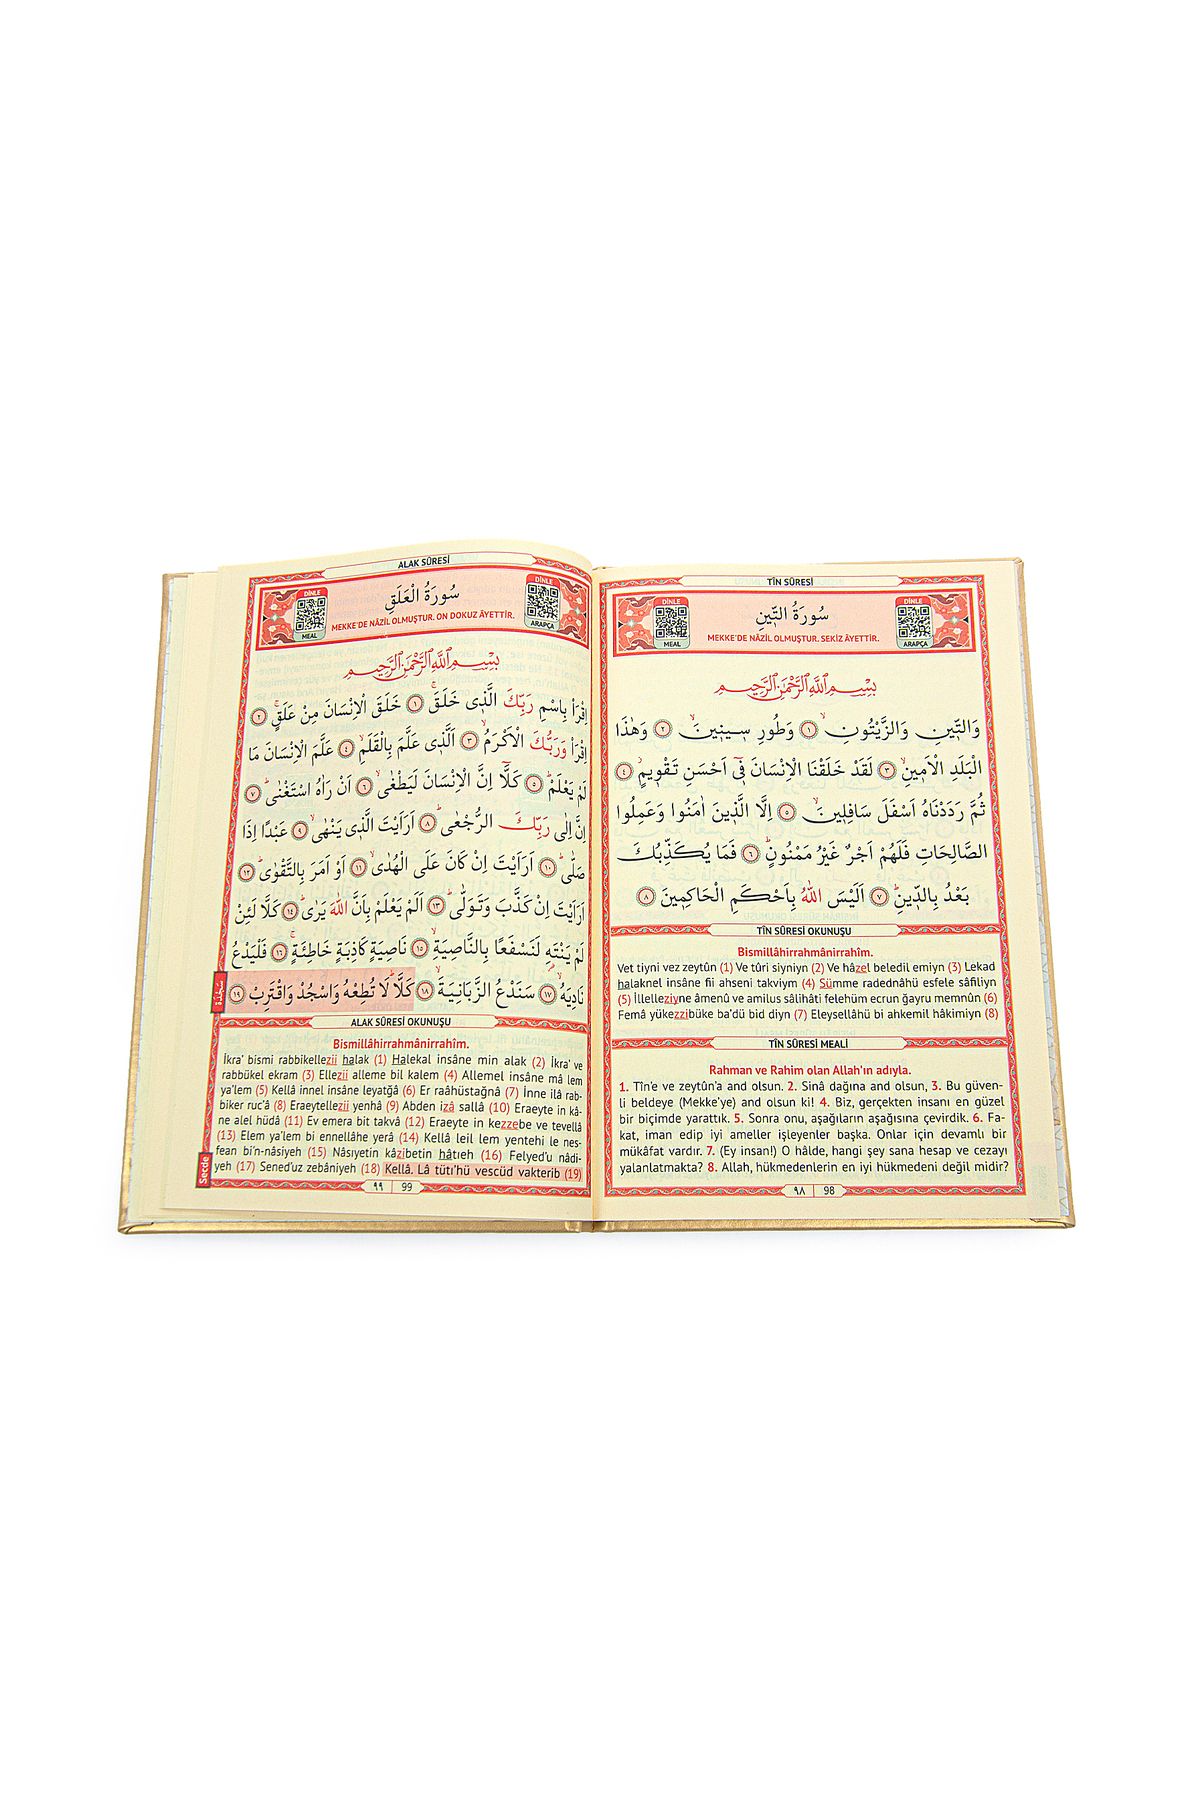 TÎN SÛRESİ
DİNLE
MEAL
سُورَةُ التّ۪ينِ
MEKKE'DE NÂZİL OLMUŞTUR. SEKİZ ÂYETTİR.
DİNLE
ARAPÇA
بِسْمِ اللّٰهِ الرَّحْمٰنِ الرَّح۪يمِ
وَالتّ۪ينِ وَالزَّيْتُونِۙ ﴿١﴾ وَطُورِ س۪ين۪ينَۙ ﴿٢﴾ وَهٰذَا
الْبَلَدِ الْاَم۪ينِۙ ﴿٣﴾ لَقَدْ خَلَقْنَا الْاِنْسَانَ ف۪ٓي اَحْسَنِ تَقْو۪يمٍۘ ﴿٤﴾
ثُمَّ رَدَدْنَاهُ اَسْفَلَ سَافِل۪ينَۙ ﴿٥﴾ اِلَّا الَّذ۪ينَ اٰمَنُوا وَعَمِلُوا
الصَّالِحَاتِ فَلَهُمْ اَجْرٌ غَيْرُ مَمْنُونٍۜ ﴿٦﴾ فَمَا يُكَذِّبُكَ
بَعْدُ بِالدّ۪ينِۜ ﴿٧﴾ اَلَيْسَ اللّٰهُ بِاَحْكَمِ الْحَاكِم۪ينَ ﴿٨﴾
TÎN SÛRESİ OKUNUŞU
Bismillâhirrahmânirrahîm.
Vet tiyni vez zeytûn (1) Ve tûri siyniyn (2) Ve hâzel beledil emiyn (3) Lekad
halaknel insâne fii ahseni takviym (4) Sümme radednâhü esfele sâfiliyn
(5) İllelleziyne âmenû ve amilus sâlihâti felehüm ecrun ğayru memnûn (6)
Femâ yükezzibüke ba'dü bid diyn (7) Eleysellâhü bi ahkemil hâkimiyn (8)
TÎN SÛRESİ MEALİ
Rahman ve Rahim olan Allah'ın adıyla.
1. Tîn'e ve zeytûn'a and olsun. 2. Sinâ dağına and olsun, 3. Bu güven-
li beldeye (Mekke'ye) and olsun ki! 4. Biz, gerçekten insanı en güzel
bir biçimde yarattık. 5. Sonra onu, aşağıların aşağısına çevirdik. 6. Fa-
kat, iman edip iyi ameller işleyenler başka. Onlar için devamlı bir
mükâfat vardır. 7. (Ey insan!) O hâlde, hangi şey sana hesap ve cezayı
yalanlatmakta? 8. Allah, hükmedenlerin en iyi hükmedeni değil midir?
٩٨ 98
ALAK SÛRESİ
DİNLE
MEAL
سُورَةُ الْعَلَقِ
MEKKE'DE NÂZİL OLMUŞTUR. ON DOKUZ ÂYETTİR.
DİNLE
ARAPÇA
بِسْمِ اللّٰهِ الرَّحْمٰنِ الرَّح۪يمِ
اِقْرَأْ بِاسْمِ رَبِّكَ الَّذ۪ي خَلَقَۚ ﴿١﴾ خَلَقَ الْاِنْسَانَ مِنْ عَلَقٍۚ ﴿٢﴾
اِقْرَأْ وَرَبُّكَ الْاَكْرَمُۙ ﴿٣﴾ اَلَّذ۪ي عَلَّمَ بِالْقَلَمِۙ ﴿٤﴾ عَلَّمَ الْاِنْسَانَ مَا
لَمْ يَعْلَمْۜ ﴿٥﴾ كَلَّٓا اِنَّ الْاِنْسَانَ لَيَطْغٰىۙ ﴿٦﴾ اَنْ رَاٰهُ اسْتَغْنٰىۜ ﴿٧﴾
اِنَّ اِلٰى رَبِّكَ الرُّجْعٰىۜ ﴿٨﴾ اَرَاَيْتَ الَّذ۪ي يَنْهٰىۙ ﴿٩﴾ عَبْدًا اِذَا
صَلّٰىۜ ﴿١٠﴾ اَرَاَيْتَ اِنْ كَانَ عَلَى الْهُدٰىۙ ﴿١١﴾ اَوْ اَمَرَ بِالتَّقْوٰىۜ ﴿١٢﴾
اَرَاَيْتَ اِنْ كَذَّبَ وَتَوَلّٰىۜ ﴿١٣﴾ اَلَمْ يَعْلَمْ بِاَنَّ اللّٰهَ يَرٰىۜ ﴿١٤﴾ كَلَّا لَئِنْ
لَمْ يَنْتَهِ لَنَسْفَعًا بِالنَّاصِيَةِۙ ﴿١٥﴾ نَاصِيَةٍ كَاذِبَةٍ خَاطِئَةٍۚ ﴿١٦﴾ فَلْيَدْعُ
نَادِيَهُۙ ﴿١٧﴾ سَنَدْعُ الزَّبَانِيَةَۙ ﴿١٨﴾ كَلَّاۜ لَا تُطِعْهُ وَاسْجُدْ وَاقْتَرِبْ ﴿١٩﴾
سَجْدَة
ALAK SÛRESİ OKUNUŞU
Bismillâhirrahmânirrahîm.
İkra' bismi rabbikellezii halak (1) Halekal insâne min alak (2) İkra' ve
rabbükel ekram (3) Ellezii alleme bil kalem (4) Allemel insâne mâ lem
ya'lem (5) Kellâ innel insâne leyatğâ (6) Er raahüstağnâ (7) İnne ilâ rab-
biker ruc'â (8) Eraeytellezii yenhâ (9) Abden izâ sallâ (10) Eraeyte in kâ-
ne alel hüdâ (11) Ev emera bit takvâ (12) Eraeyte in kezzebe ve tevellâ
(13) Elem ya'lem bi ennellahe yerâ (14) Kellâ leil lem yentehi le nes-
fean bi'n-nâsiyeh (15) Nâsıyetin kâzibetin hâtıeh (16) Felyed'u nâdi-
yeh (17) Sened'uz zebâniyeh (18) Kellâ. Lâ tütı'hü vescüd vakterib (19)
Secde
٩٩ 99